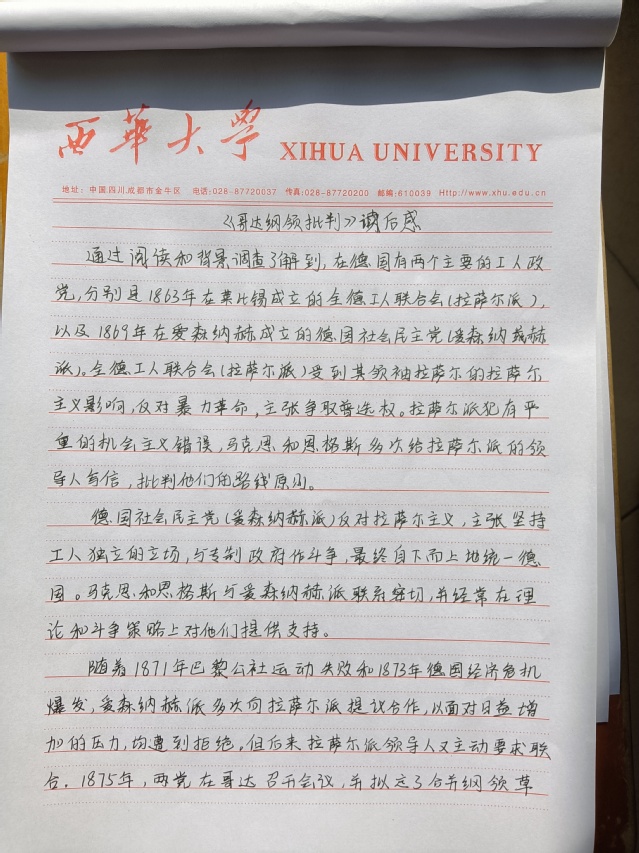 西華大学 XIHUA UNIVERSITY
地址：中国.四川.成都市金牛区 电话:028-87720037 传真:028-87720200 邮编:610039 Http://www.xhu.edu.cn
《哥达纲领批判》读后感
通过阅读和背景调查了解到，在德国有两个主要的工人政
党，分别是1863年在莱比锡成立的全德工人联合会(拉萨尔派)，
以及1869年在爱森纳赫成立的德国社会民主党(爱森纳赫
派)。全德工人联合会(拉萨尔派)受到其领袖拉萨尔的拉萨尔
主义影响，反对暴力革命，主张争取普选权。拉萨尔派犯有严
重的机会主义错误，马克思和恩格斯多次给拉萨尔派的领
导人写信，批判他们的路线原则。
德国社会民主党(爱森纳赫派)反对拉萨尔主义，主张坚持
工人独立的立场，与专制政府作斗争，最终自下而上地统一德
国。马克思和恩格斯与爱森纳赫派联系密切，并经常在理
论和斗争策略上对他们提供支持。
随着1871年巴黎公社运动失败和1873年德国经济危机
爆发，爱森纳赫派多次向拉萨尔派提议合作，以面对日益增
加的压力，均遭到拒绝。但后来拉萨尔派领导人又主动要求联
合。1875年，两党在哥达召开会议，并拟定了合并纲领草